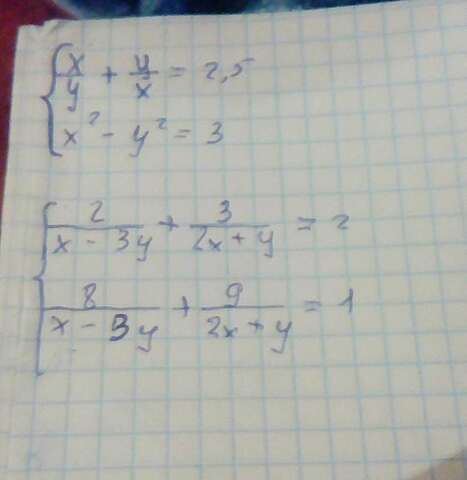 x/y + y/x = 2,5
x² - y² = 3
2/(x - 3y) + 3/(2x + y) = 2
8/(x - 3y) + 9/(2x + y) = 1